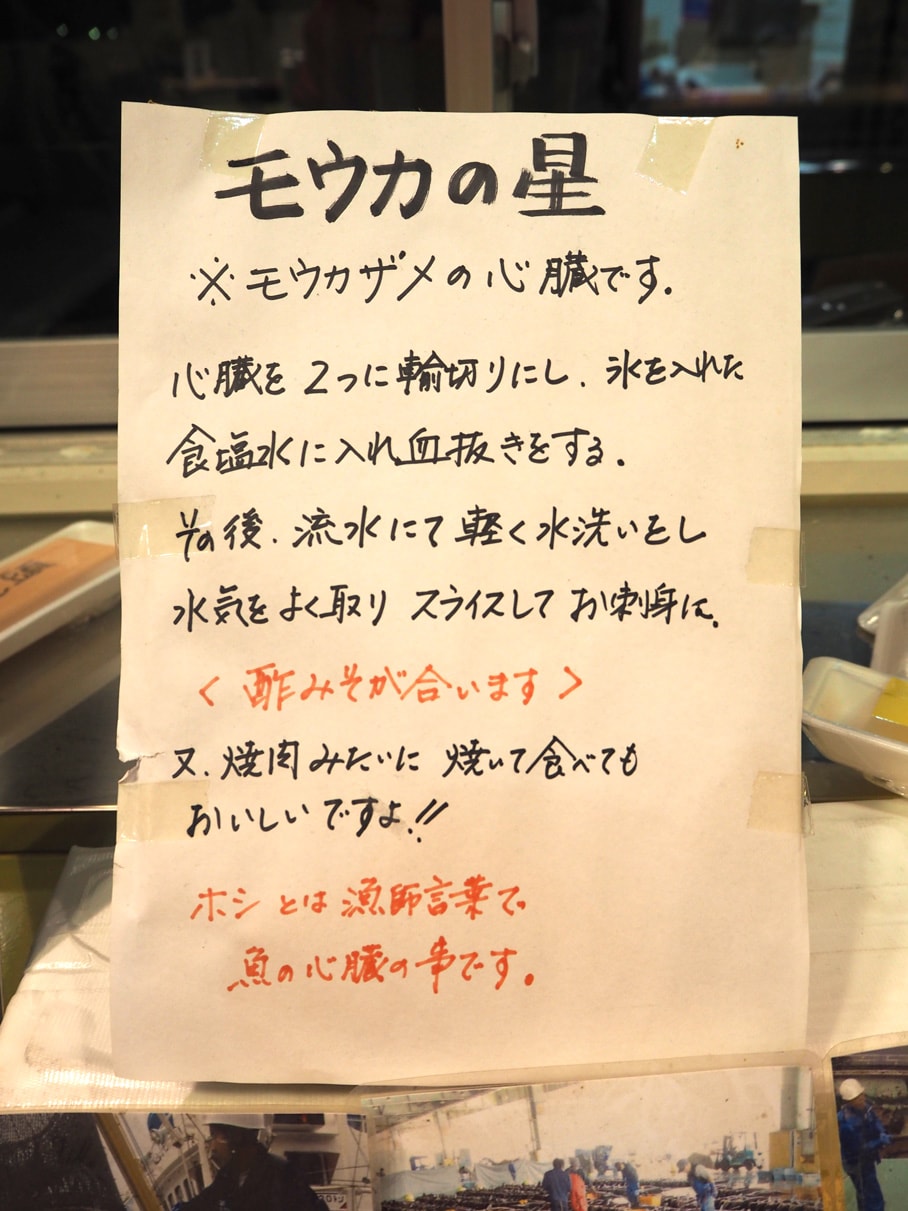 モウカの星
※モウカザメの心臓です.
心臓を2つに輪切りにし、氷を入れた
食塩水に入れ血抜きをする.
その後、流水にて軽く水洗いをし
水気をよく取り スライスして お刺身に.
〈酢みそが合います〉
又、焼肉みたいに 焼いて食べても
おいしいですよ!!
ホシとは漁師言葉で、
魚の心臓の事です。